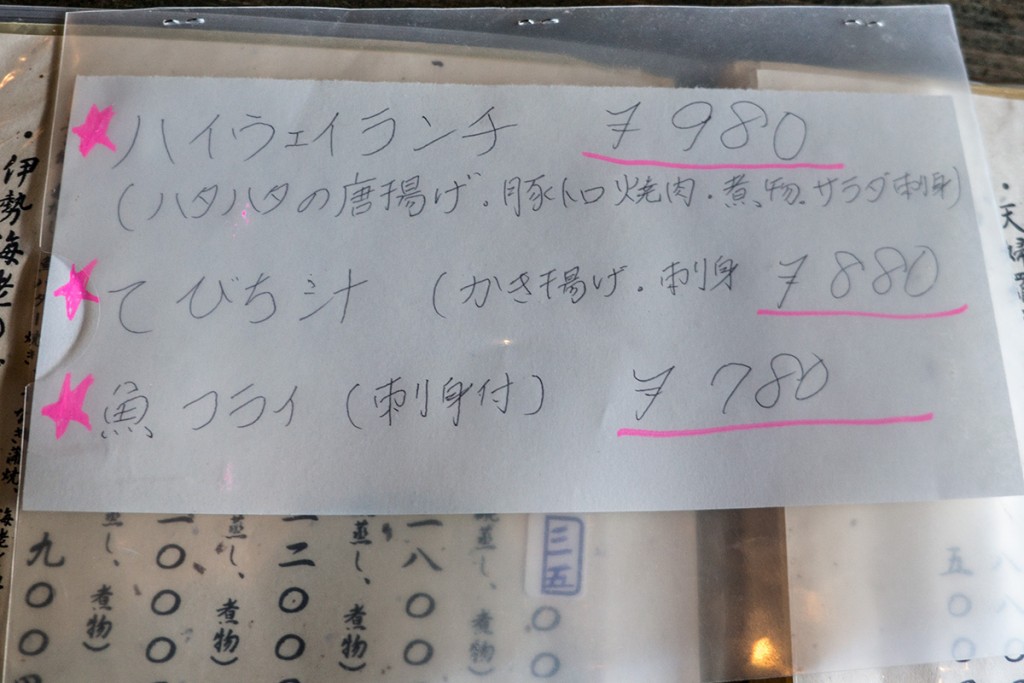 ★ハイウェイランチ ¥980
(ハタハタの唐揚げ.豚トロ焼肉.煮物.サラダ刺身)
★てびち汁 (かき揚げ.刺身 ¥880
★魚フライ(刺身付) ¥780
・伊勢海老の
九〇〇
蒸し、煮物)
一〇〇〇
蒸し、煮物)
一二〇〇
蒸し、煮物)
一八〇〇
蒸し、煮物)
三五〇〇
五〇〇